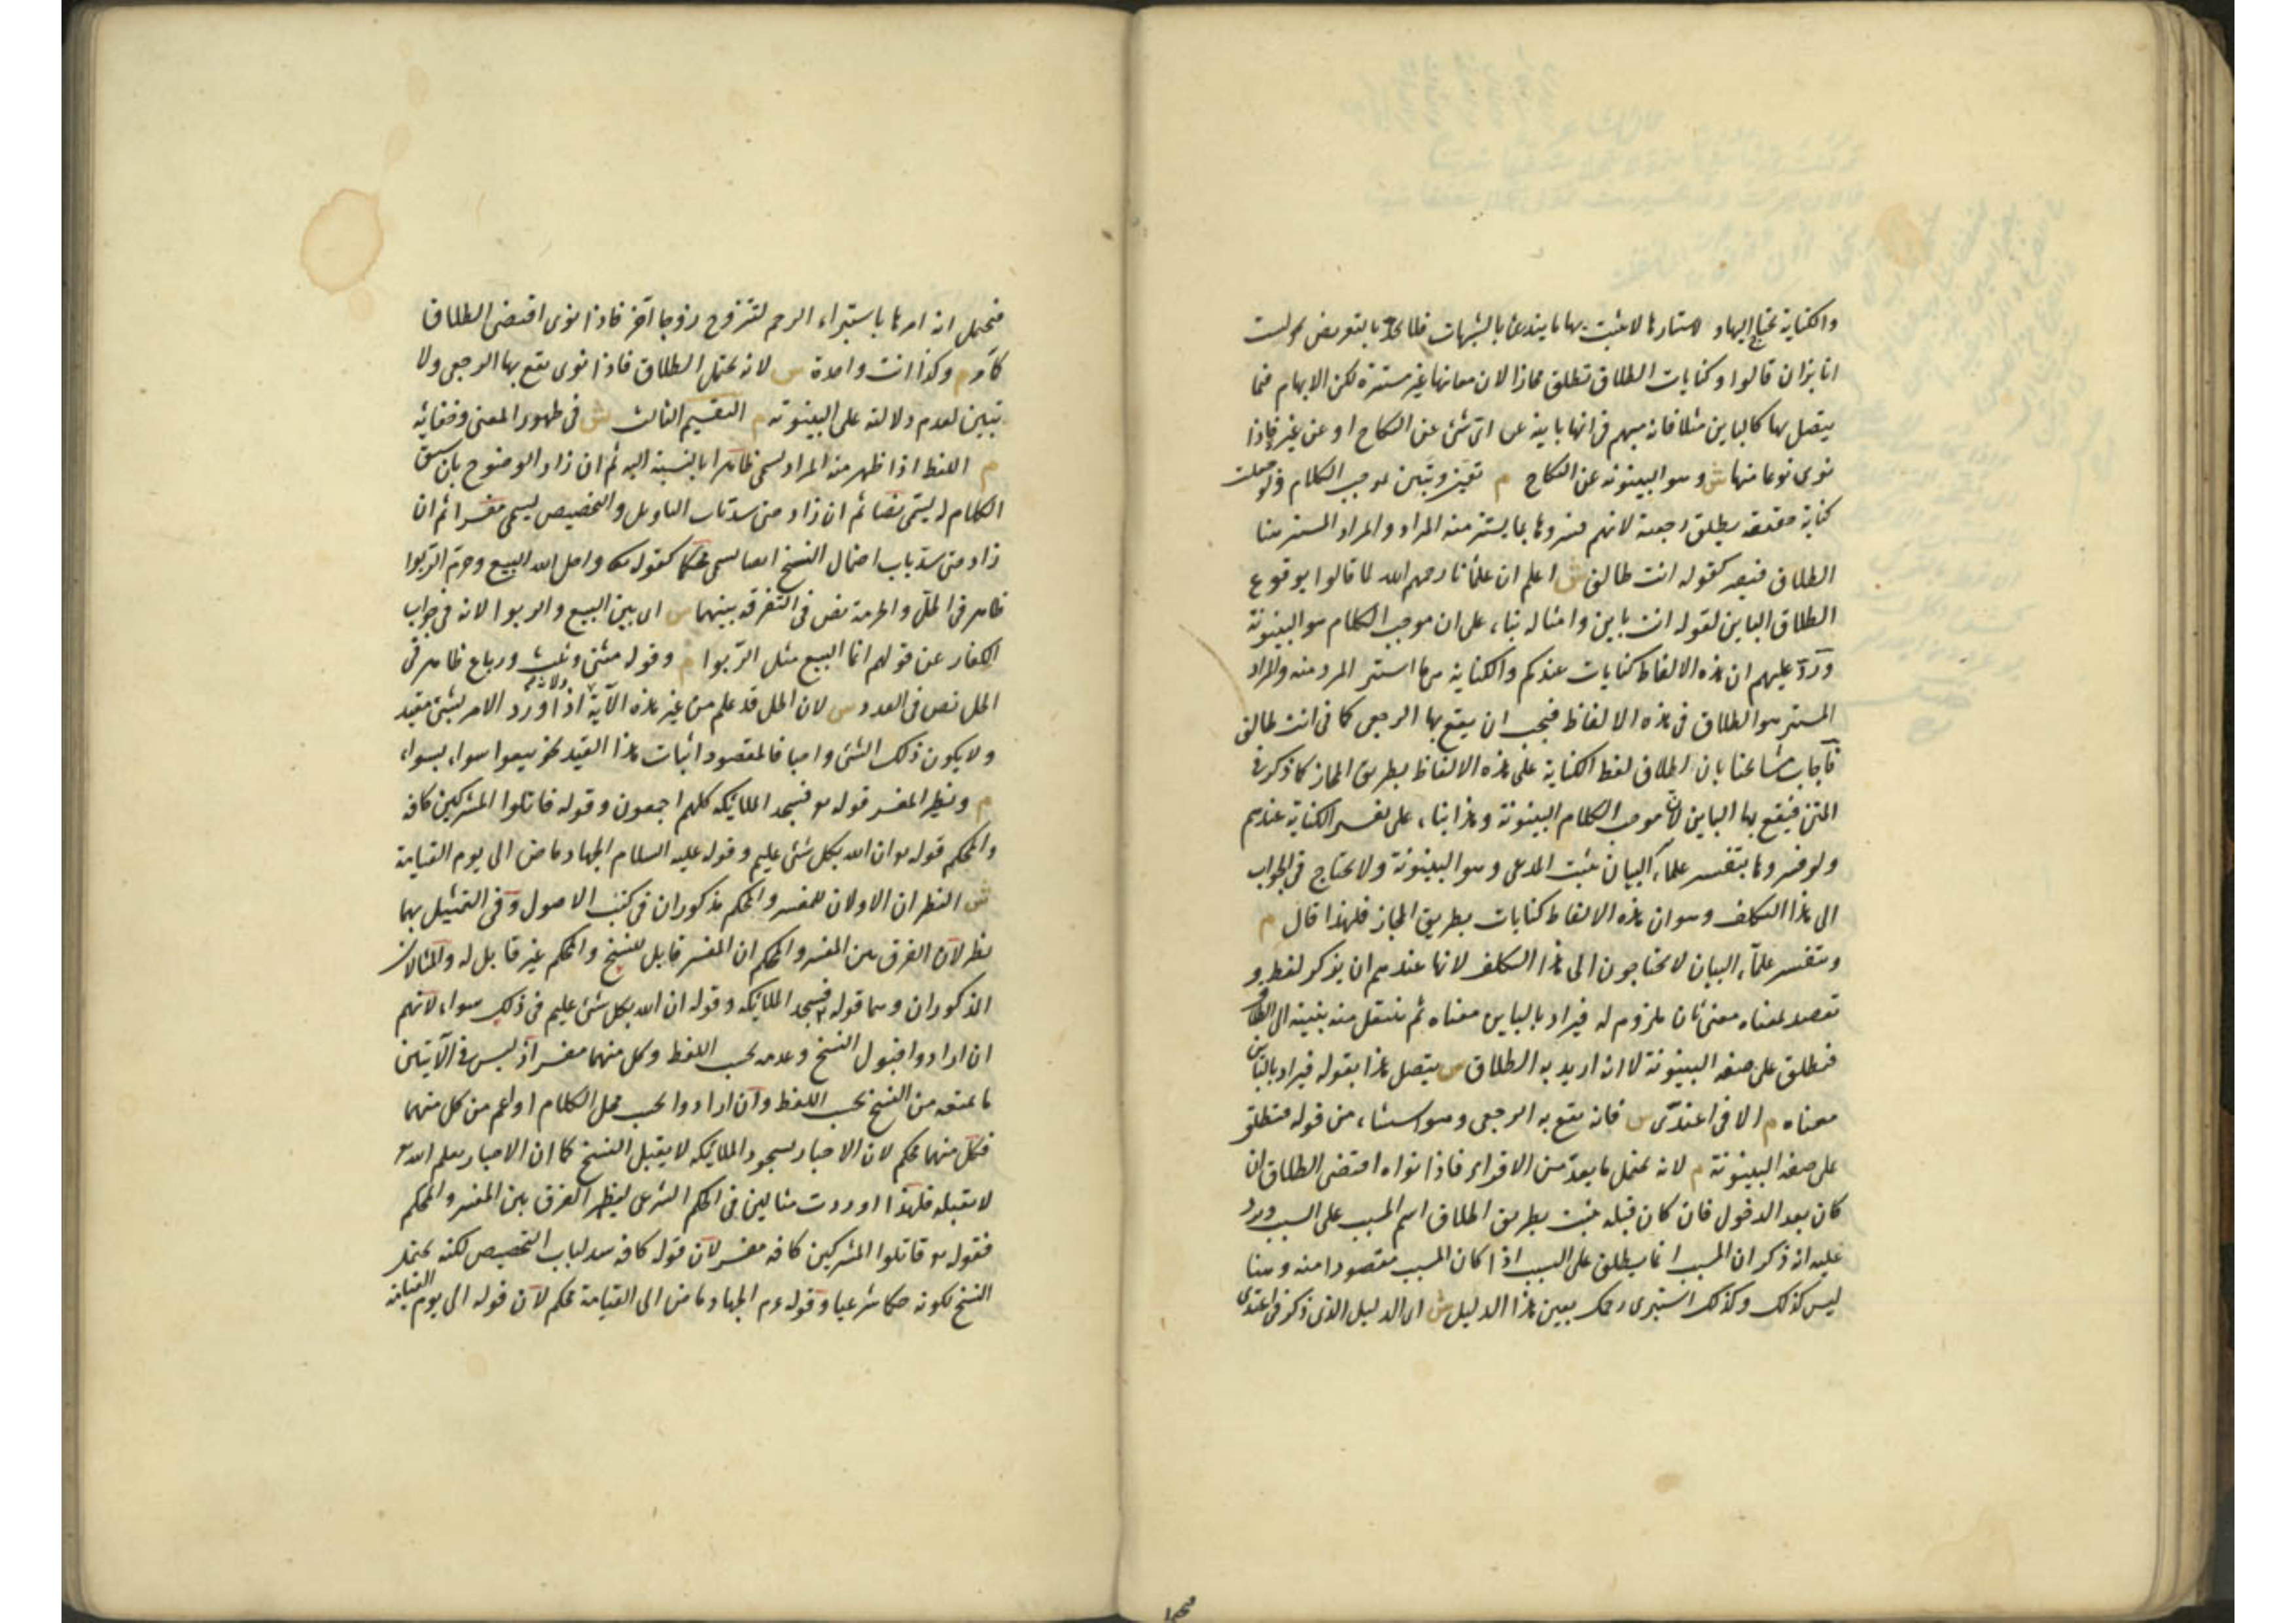 والكناية تحتاج اليها ولاستتارها لا يثبت بها ما يندرئ بالشبهات فلا يحد بالتعريض نحو لست
انا بزان قالوا وكنايات الطلاق تطلق مجازا لان معانيها غير مستترة لكن الابهام فيما
يتصل بها كالباين مثلا فانه مبهم في انها باينة عن اى شئ عن النكاح او عن غيره فاذا
نوى نوعا منها ش وهو البينونة عن النكاح م تعين وتبين بموجب الكلام ولو جعلت
كناية حقيقة يطلق رجعية لانهم فسروها بما يستتر منه المراد والمراد المستتر هنا
الطلاق فيصير كقوله انت طالق ش اعلم ان علمائنا رحمهم الله لما قالوا بوقوع
الطلاق الباين بقوله انت باين وامثاله بناء على ان موجب الكلام هو البينونة
ورد عليهم ان هذه الالفاظ كنايات عندكم والكناية هى ما استتر المراد منه والمراد
المستتر هو الطلاق في هذه الالفاظ فيجب ان يقع بها الرجعى كما في انت طالق
فاجاب مشايخنا بان اطلاق لفظ الكناية على هذه الالفاظ بطريق المجاز كما ذكر في
المتن فيقع بها الباين لان موجب الكلام البينونة وهذا بناء على تفسير الكناية عندهم
ولو فسروها بتفسير علماء البيان يثبت المدعى وهو البينونة ولا يحتاج في الجواب
الى هذا التكلف وهو ان هذه الالفاظ كنايات بطريق المجاز فلهذا قال م
وبتفسير علماء البيان لا يحتاجون الى هذا التكلف لانها عندهم ان يذكر لفظ و
يقصد بمعناه معنى ثان ملزوم له فيراد بالباين معناه ثم ينتقل منه بنيته الى الطلاق
فتطلق على صفة البينونة لا انه اريد به الطلاق ش يتصل هذا بقوله فيراد بالباين
معناه م الا في اعتدى ش فانه يقع به الرجعى وهو استثناء من قوله فتطلق
على صفة البينونة م لانه يحتمل ما يعد من الاقراء فاذا نواه اقتضى الطلاق ان
كان بعد الدخول فان كان قبله يثبت بطريق اطلاق اسم المسبب على السبب ويرد
عليه انه ذكر ان المسبب انما يطلق على السبب اذا كان المسبب مقصودا منه وهنا
ليس كذلك وكذلك استبرئى رحمك بعين هذا الدليل ش اى الدليل الذى ذكر في اعتدى
فيحتمل انه امرها باستبراء الرحم لتتزوج زوجا آخر فاذا نوى اقتضى الطلاق
كما مر م وكذا انت واحدة ش لانه يحتمل الطلاق فاذا نوى يقع بها الرجعى ولا
تبين لعدم دلالته على البينونة م التقسيم الثالث ش في ظهور المعنى وخفائه
م اللفظ اذا ظهر منه المراد يسمى ظاهرا بالنسبة اليه ثم ان زاد الوضوح بان سيق
الكلام له يسمى نصا ثم ان زاد حتى سد باب التاويل والتخصيص يسمى مفسرا ثم ان
زاد حتى سد باب احتمال النسخ ايضا يسمى محكما كقوله تعالى واحل الله البيع وحرم الربوا
ظاهر في الحل والحرمة نص في التفرقة بينهما ش اى بين البيع والربوا لانه في جواب
الكفار عن قولهم انما البيع مثل الربوا م وقوله مثنى وثلث ورباع ظاهر في
الحل نص في العدد ش لان الحل قد علم من غير هذه الآية ولانه اذا ورد الامر بشئ مقيد
ولا يكون ذلك الشئ واجبا فالمقصود اثبات هذا القيد نحو بيعوا سواء بسواء
م ونظير المفسر قوله تعالى فسجد الملائكة كلهم اجمعون وقوله قاتلوا المشركين كافة
والمحكم قوله تعالى ان الله بكل شئ عليم وقوله عليه السلام الجهاد ماض الى يوم القيامة
ش النظيران الاولان للمفسر والمحكم مذكوران في كتب الاصول وفي التمثيل بهما
نظر لان الفرق بين المفسر والمحكم ان المفسر قابل للنسخ والمحكم غير قابل له والمثالان
المذكوران وهما قوله فسجد الملائكة وقوله ان الله بكل شئ عليم في ذلك سواء لانهم
ان ارادوا قبول النسخ وعدمه بحسب اللفظ وكل منهما مفسر اذ ليس في الآيتين
ما يمنعه من النسخ بحسب اللفظ وان ارادوا بحسب محل الكلام او اعم من كل منهما
فكل منهما محكم لان الاخبار بسجود الملائكة لا يقبل النسخ كما ان الاخبار بعلم الله
لا يقبله فلهذا اوردت مثالين في الحكم الشرعى ليظهر الفرق بين المفسر والمحكم
فقوله تعالى قاتلوا المشركين كافة مفسر لان قوله كافة سد لباب التخصيص لكنه يحتمل
النسخ لكونه حكما شرعيا وقوله عم الجهاد ماض الى القيامة محكم لان قوله الى يوم القيامة